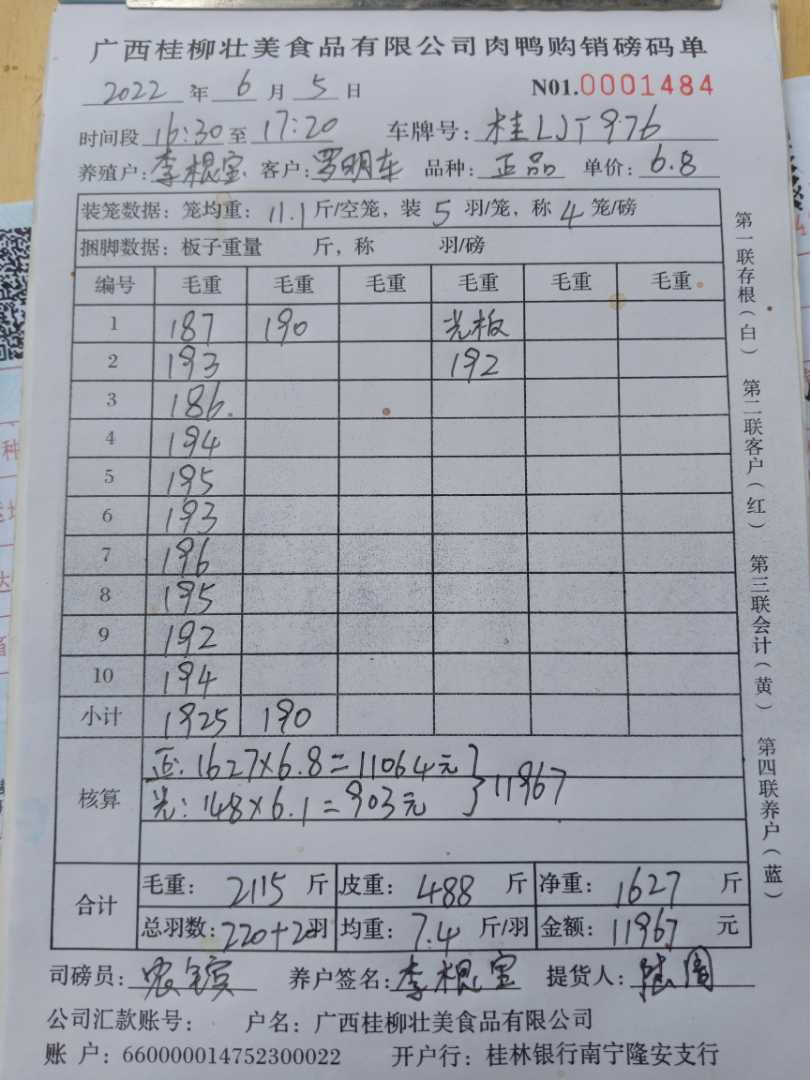 广西桂柳壮美食品有限公司肉鸭购销磅码单
2022 年 6 月 5 日 N01.0001484
时间段 16:30 至 17:20 车牌号: 桂LJT976
养殖户: 李根宝 客户: 罗明东 品种: 正品 单价: 6.8
装笼数据: 笼均重: 11.1 斤/空笼, 装 5 羽/笼, 称 4 笼/磅
捆脚数据: 板子重量 斤, 称 羽/磅
编号 毛重 毛重 毛重 毛重 毛重 毛重
1 187 190 光板
2 193 192
3 186.
4 194
5 195
6 193
7 196
8 195
9 192
10 194
小计 1925 190
核算
正: 1627×6.8=11064元
光: 148×6.1=903元 } 11967
合计
毛重: 2115 斤 皮重: 488 斤 净重: 1627 斤
总羽数: 220+20羽 均重: 7.4 斤/羽 金额: 11967 元
司磅员: 养户签名: 李根宝 提货人:
公司汇款账号: 户名: 广西桂柳壮美食品有限公司
账 户: 660000014752300022 开户行: 桂林银行南宁隆安支行
第一联存根(白) 第二联客户(红) 第三联会计(黄) 第四联养户(蓝)